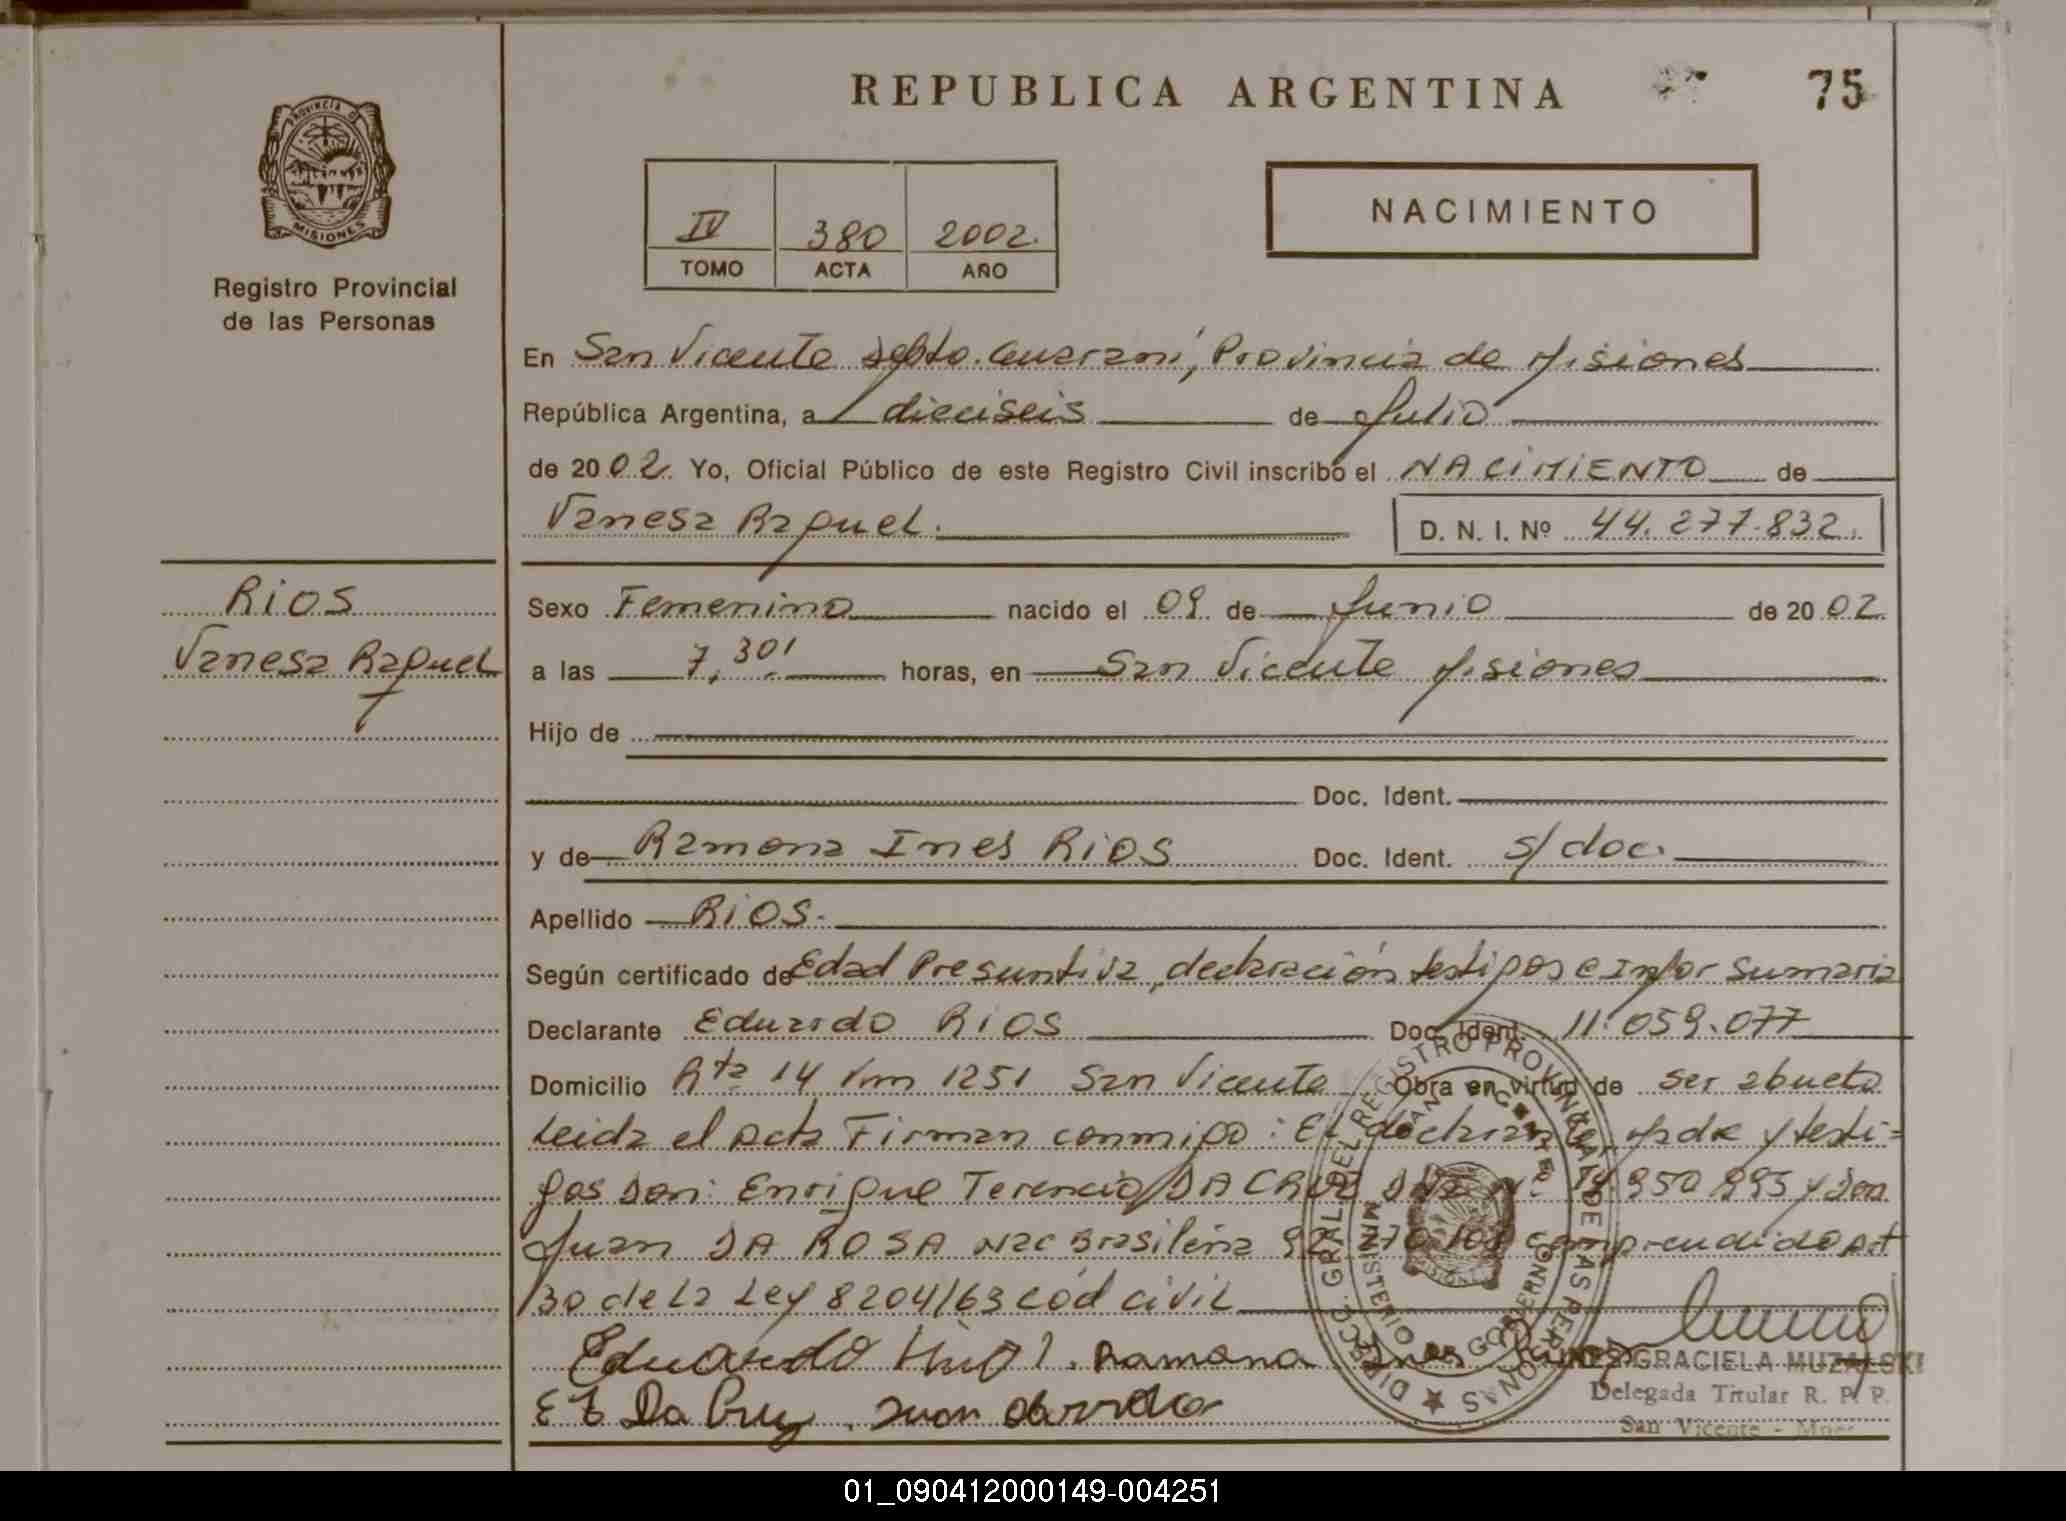 REPUBLICA ARGENTINA
75
PROVINCIA DE
MISIONES
Registro Provincial
de las Personas
IV 380 2002.
TOMO ACTA AÑO
NACIMIENTO
En San Vicente Depto. Guaraní, Provincia de Misiones
República Argentina, a dieciseis de Julio
de 2002. Yo, Oficial Público de este Registro Civil inscribo el NACIMIENTO de
Vanesa Raquel.
D. N. I. Nº 44.277.832.
RIOS
Vanesa Raquel
Sexo Femenino nacido el 09 de Junio de 2002
a las 7,30' horas, en San Vicente Misiones
Hijo de
Doc. Ident.
y de Ramona Ines RIOS Doc. Ident. s/doc.
Apellido RIOS.
Según certificado de Edad Presuntiva, declaración testigos e Infor Sumaria
Declarante Eduardo RIOS Doc. Ident. 11.059.077
Domicilio Rta 14 Km 1251 San Vicente Obra en virtud de ser abuelo
Leida el Acta Firman conmigo: El declarante, Madre y testi=
gos Don: Enrique Terencio DA CRUZ DNI Nº 950 995 y Don
Juan DA ROSA Nac Brasileña comprendido Art
30 de La Ley 8204/63 cód civil
Eduardo Ramona Ines
E T Da Cruz Juan
DIREC. GRAL. DEL REGISTRO PROVINCIAL DE LAS PERSONAS
SAN VICENTE
MINISTERIO GOBIERNO
MISIONES
INES GRACIELA MUZALSKI
Delegada Titular R. P. P.
San Vicente - Mnes
01_090412000149-004251